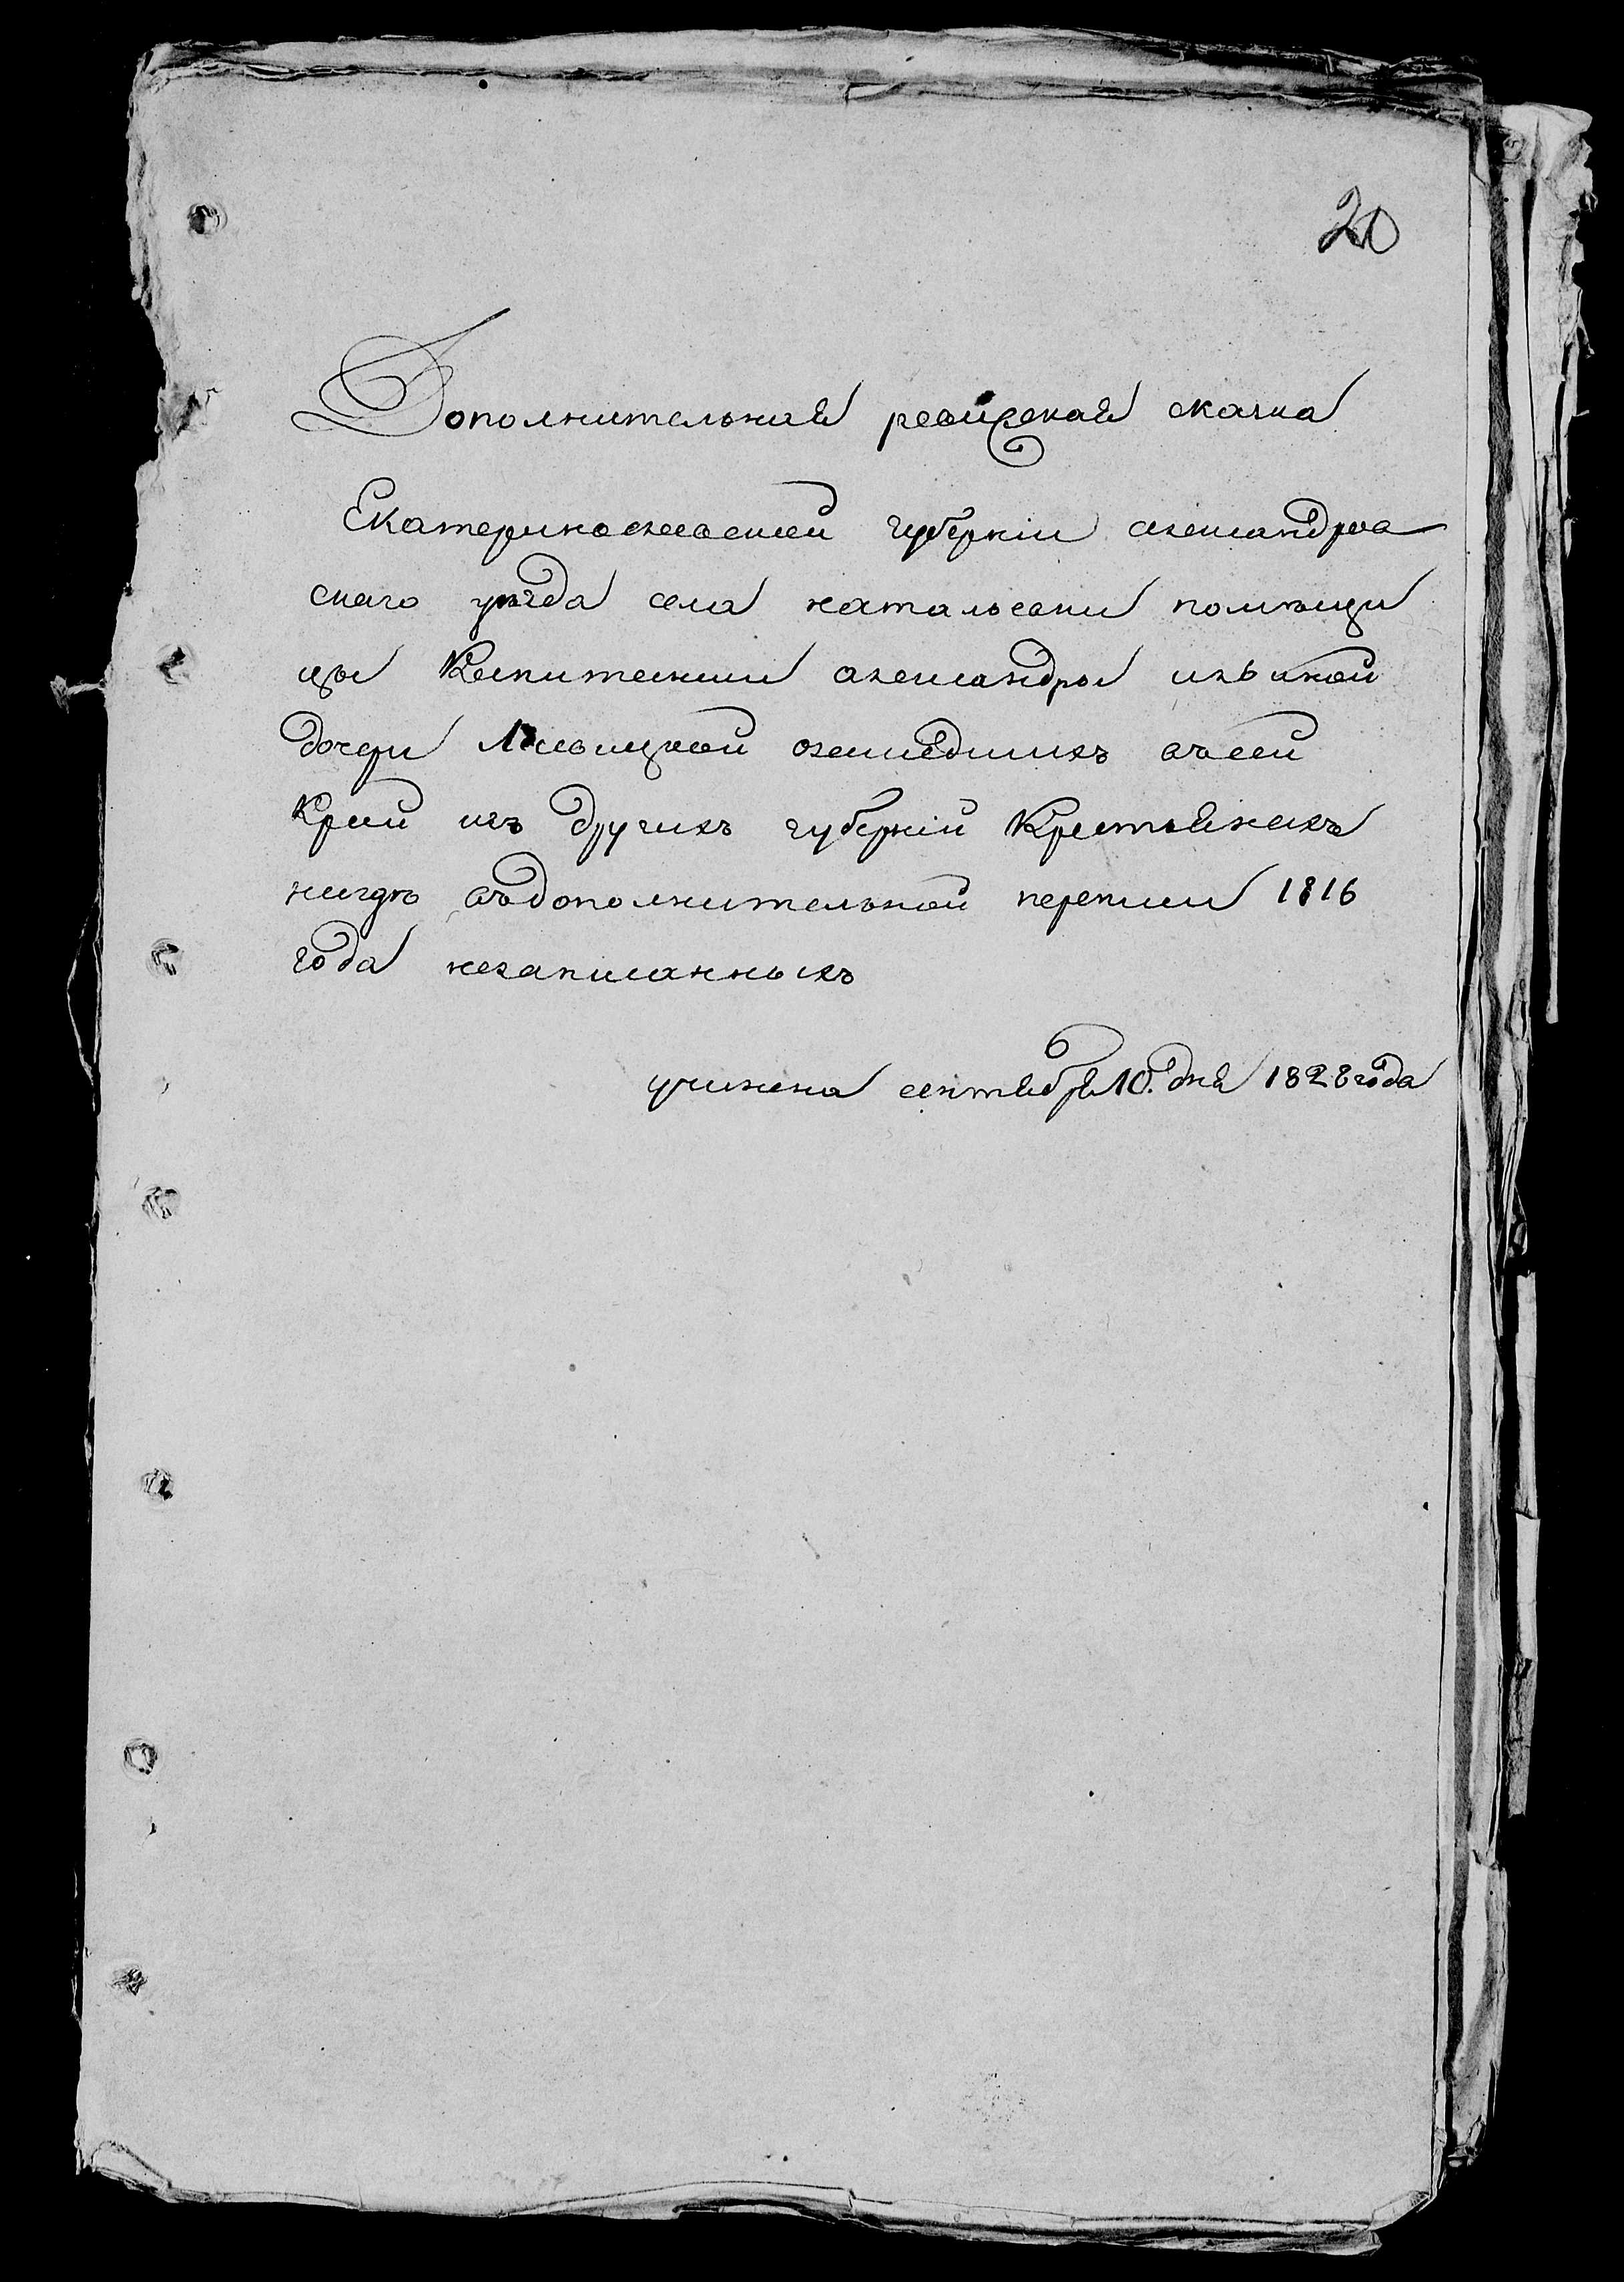 20
Дополнительная ревизская сказка
Екатеринославской губерніи александров
скаго уѣзда села натальевки помѣщи
цы Капитанши александры ильиной
дочери зашедшихъ въ сей
Край изъ другихъ губерній Крестьянахъ
нигдѣ въ дополнительной переписи 1816
года незаписанныхъ
учинена сентября 10. дня 1828 года